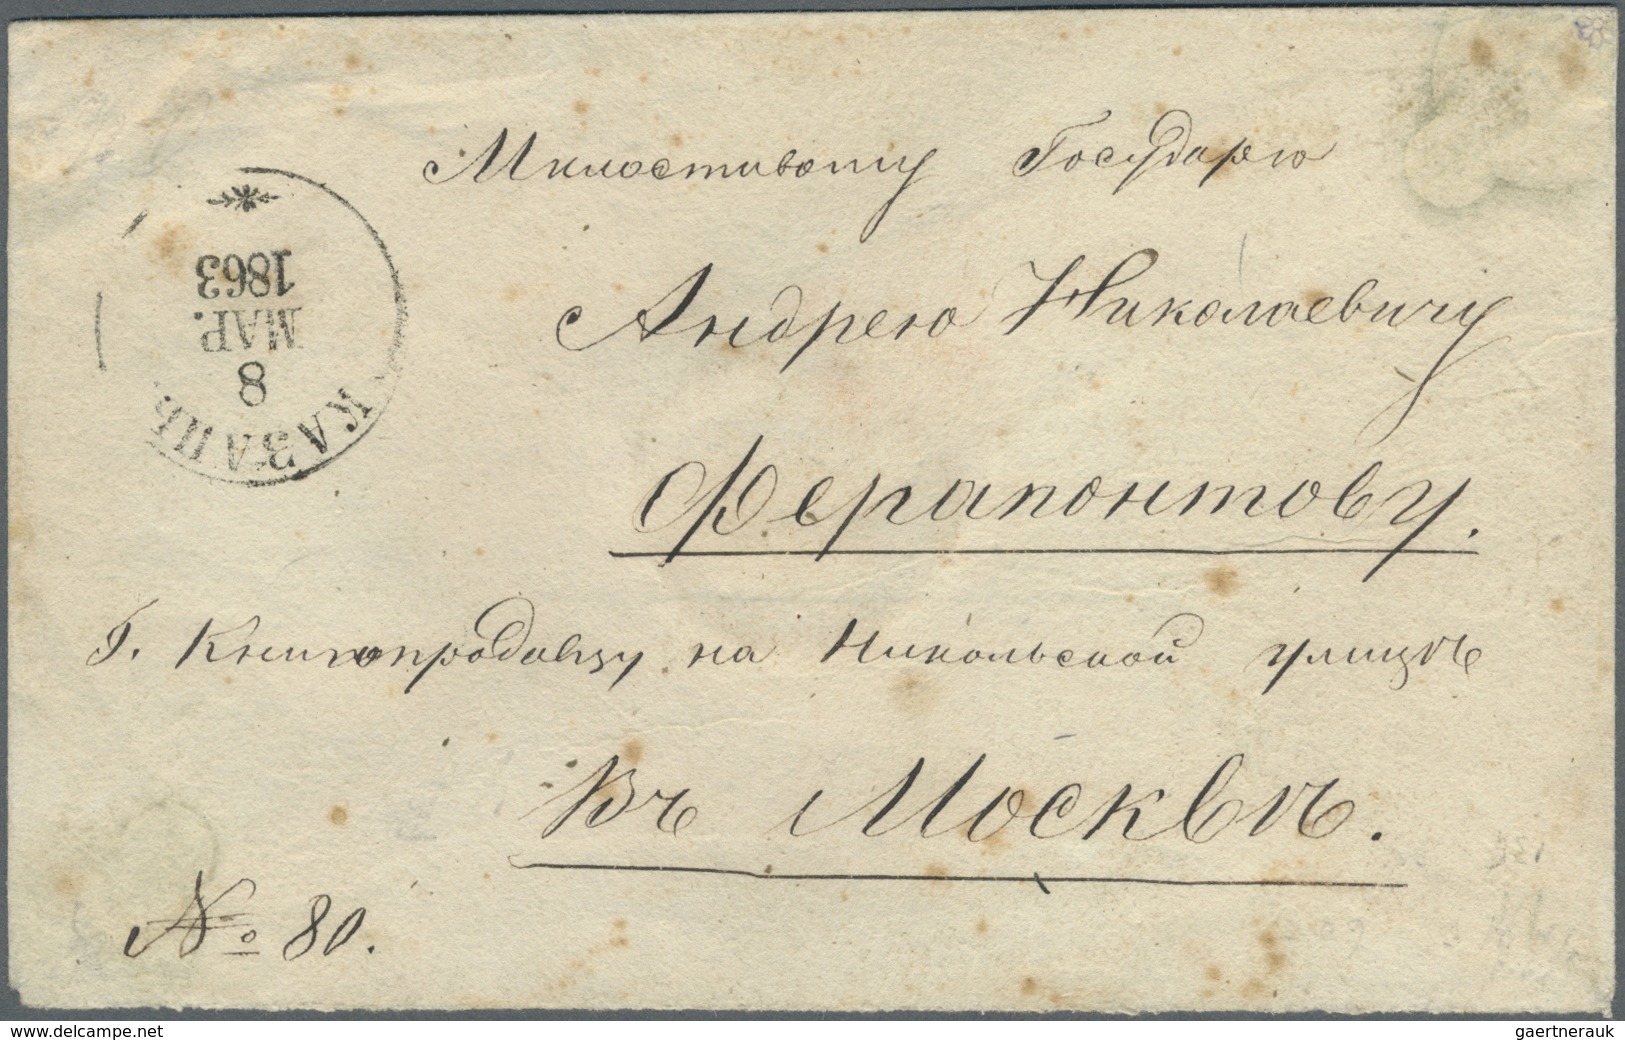 Милостивому Государю
Андрею Николаевичу
Ферапонтову.
Г. Книгопродавцу на Никольской улицѣ
Въ Москвѣ.
№ 80.
1863
МАР.
8
КАЗАНЬ.
www.delcampe.net
gaertnerauk